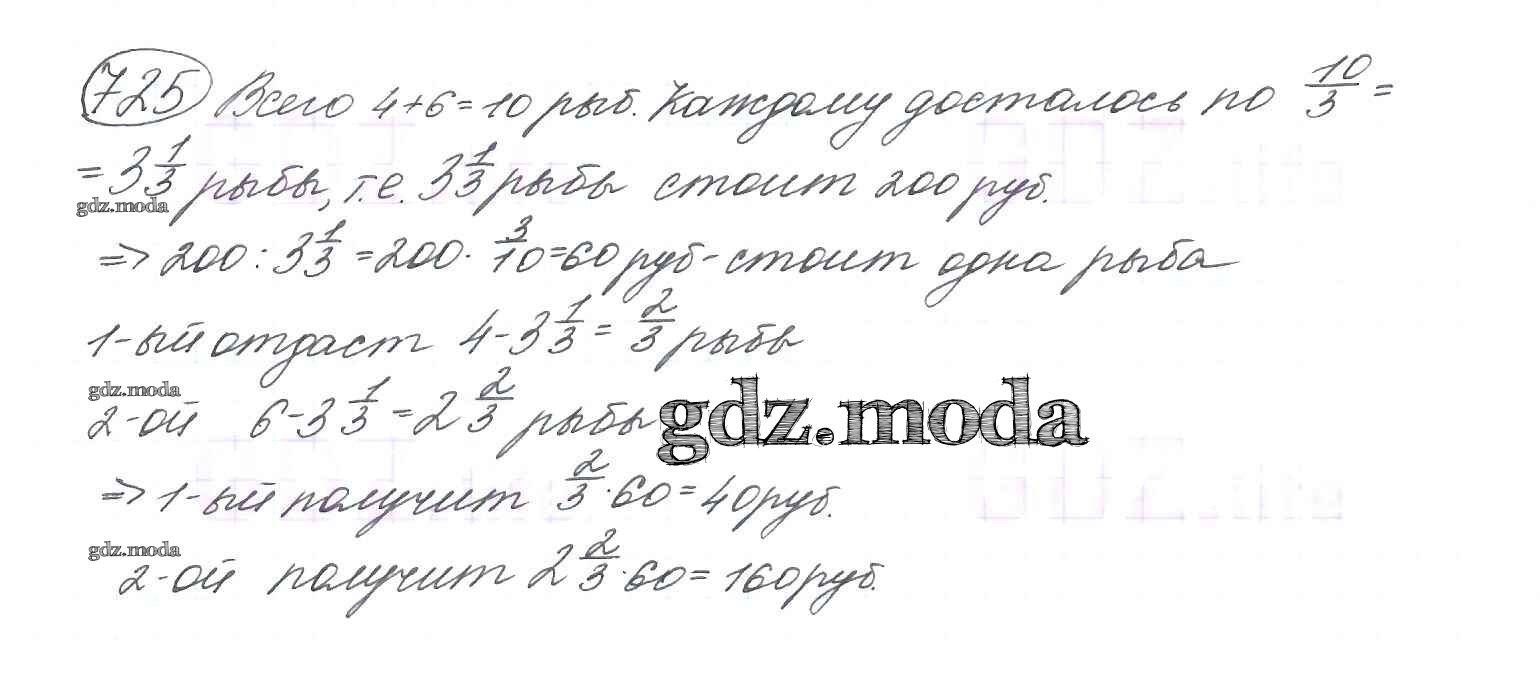 725 Всего 4+6=10 рыб. Каждому досталось по 10/3 =
= 3 1/3 рыбы, т.е. 3 1/3 рыбы стоит 200 руб.
gdz.moda
=> 200 : 3 1/3 = 200 · 3/10 = 60 руб - стоит одна рыба
1-ый отдаст 4 - 3 1/3 = 2/3 рыбы
gdz.moda
2-ой 6 - 3 1/3 = 2 2/3 рыбы
gdz.moda
=> 1-ый получит 2/3 · 60 = 40 руб.
gdz.moda
2-ой получит 2 2/3 · 60 = 160 руб.